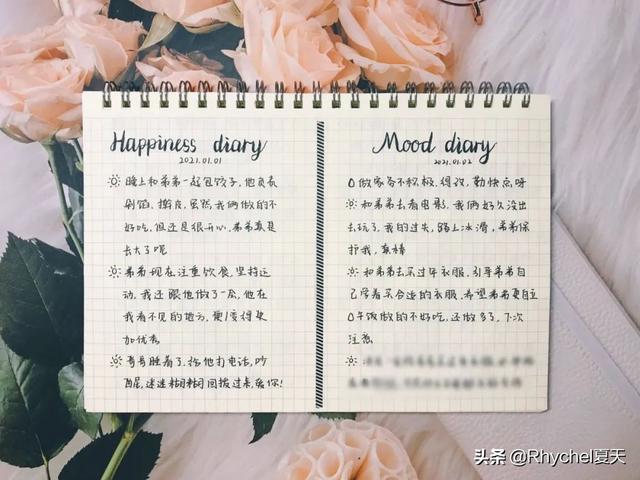 Happiness diary
2021.01.01
晚上和弟弟一起包饺子,他负责
剁馅、擀皮,虽然我俩做的不
好吃,但还是很开心,弟弟真是
长大了呢
弟弟现在注重饮食,坚持运
动,我还跟他做了一会,他在
我看不见的地方,变得更
加优秀
哥哥睡着了,给他打电话,吵
醒,迷迷糊糊回拨过来,爱你!
Mood diary
2021.01.02
做家务不积极,得改,勤快点呀
和弟弟去看电影,我俩好久没出
去玩了,我的过失,路上冰滑,弟弟保
护我,真棒
和弟弟去买过年衣服,引导弟弟自
己学着买合适的衣服,希望弟弟更自立
午饭做的不好吃,还做多了,下次
注意
头条 @Rhychel夏天